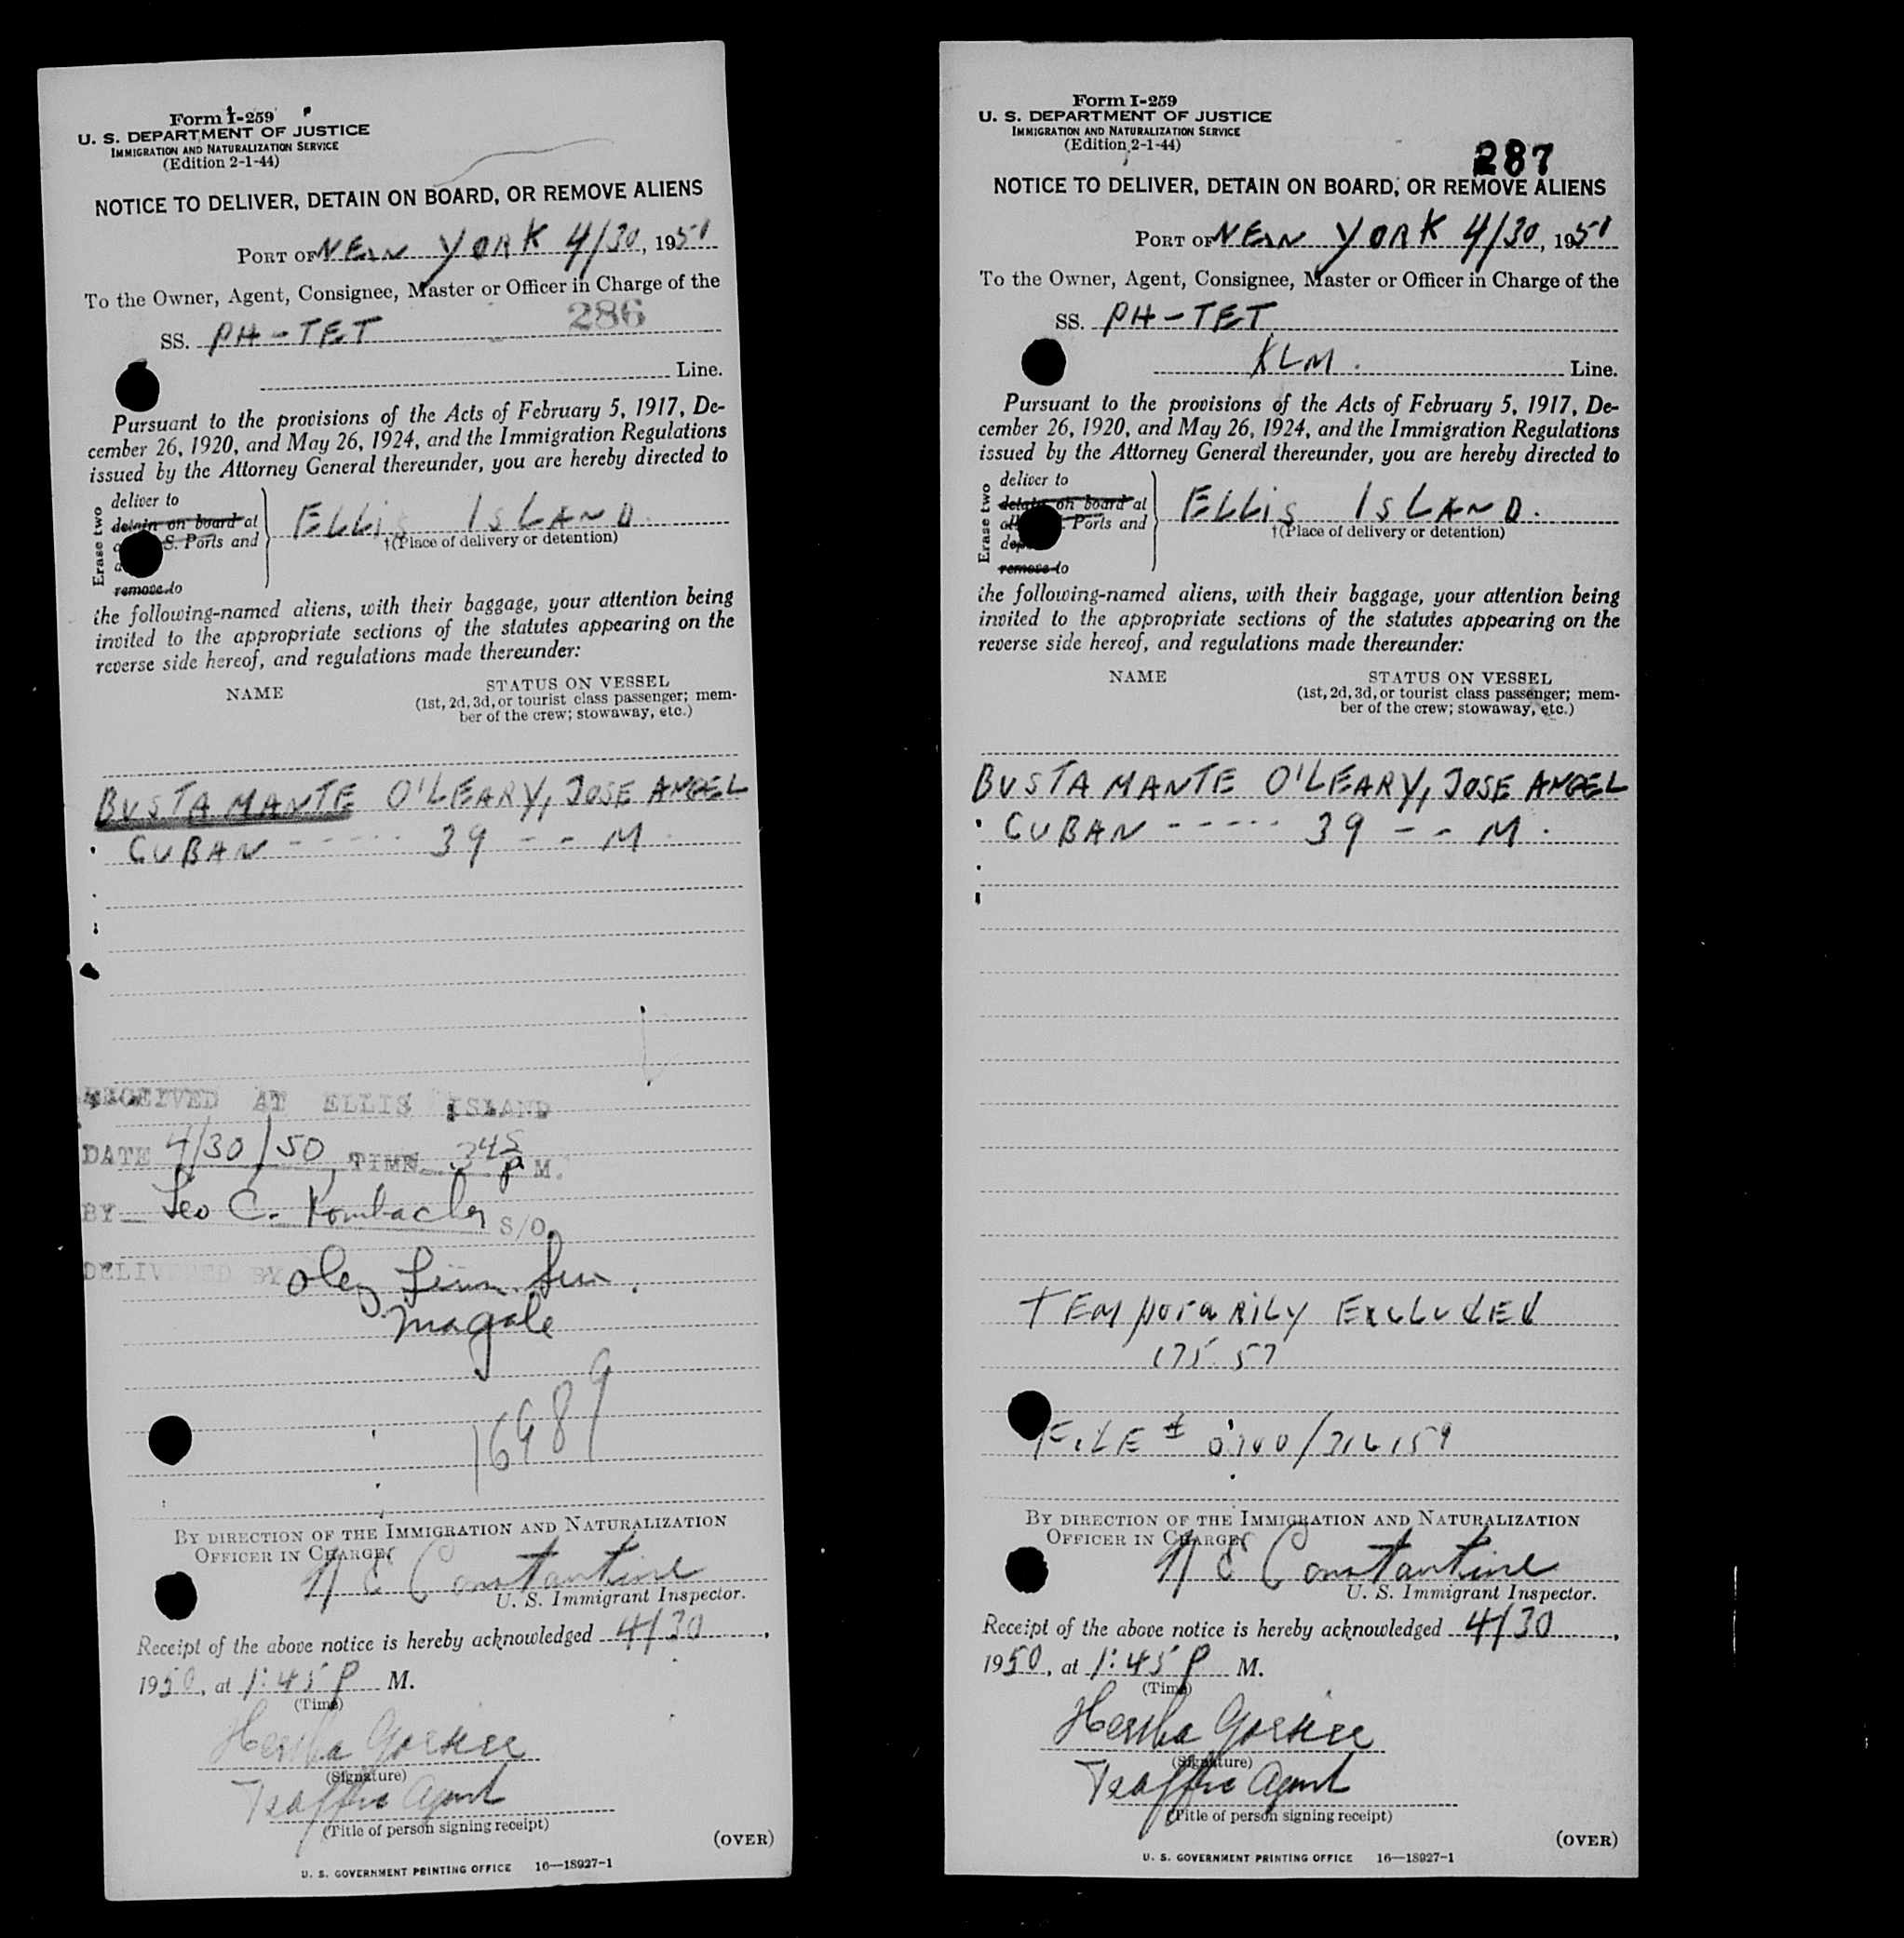 Form I-259
U. S. DEPARTMENT OF JUSTICE
IMMIGRATION AND NATURALIZATION SERVICE
(Edition 2-1-44)
NOTICE TO DELIVER, DETAIN ON BOARD, OR REMOVE ALIENS
PORT OF NEW YORK 4/30, 1950
To the Owner, Agent, Consignee, Master or Officer in Charge of the
286
SS. PH-TET
Line.
Pursuant to the provisions of the Acts of February 5, 1917, De-
cember 26, 1920, and May 26, 1924, and the Immigration Regulations
issued by the Attorney General thereunder, you are hereby directed to
Erase two
deliver to
detain on board at
S. Ports and
remove to
ELLIS ISLAND.
†(Place of delivery or detention)
the following-named aliens, with their baggage, your attention being
invited to the appropriate sections of the statutes appearing on the
reverse side hereof, and regulations made thereunder:
NAME STATUS ON VESSEL
(1st, 2d, 3d, or tourist class passenger; mem-
ber of the crew; stowaway, etc.)
BUSTAMANTE O'LEARY, JOSE ANGEL
CUBAN ----- 39 -- M.
RECEIVED AT ELLIS ISLAND
DATE 4/30/50, TIME 345 P M.
BY Leo C. S/O
DELIVERED BY
16989
BY DIRECTION OF THE IMMIGRATION AND NATURALIZATION
OFFICER IN CHARGE,
N E Constantine
U. S. Immigrant Inspector.
Receipt of the above notice is hereby acknowledged 4/30,
1950, at 1:45 P M.
(Time)
Hertha
(Signature)
Traffic Agent
(Title of person signing receipt)
(OVER)
U. S. GOVERNMENT PRINTING OFFICE 16—18927-1
Form I-259
U. S. DEPARTMENT OF JUSTICE
IMMIGRATION AND NATURALIZATION SERVICE
(Edition 2-1-44)
287
NOTICE TO DELIVER, DETAIN ON BOARD, OR REMOVE ALIENS
PORT OF NEW YORK 4/30, 1950
To the Owner, Agent, Consignee, Master or Officer in Charge of the
SS. PH-TET
KLM. Line.
Pursuant to the provisions of the Acts of February 5, 1917, De-
cember 26, 1920, and May 26, 1924, and the Immigration Regulations
issued by the Attorney General thereunder, you are hereby directed to
Erase two
deliver to
detain on board at
Ports and
remove to
ELLIS ISLAND.
†(Place of delivery or detention)
the following-named aliens, with their baggage, your attention being
invited to the appropriate sections of the statutes appearing on the
reverse side hereof, and regulations made thereunder:
NAME STATUS ON VESSEL
(1st, 2d, 3d, or tourist class passenger; mem-
ber of the crew; stowaway, etc.)
BUSTAMANTE O'LEARY, JOSE ANGEL
CUBAN ----- 39 -- M.
TEMPORARILY EXCLUDED
175.57
FILE #
BY DIRECTION OF THE IMMIGRATION AND NATURALIZATION
OFFICER IN CHARGE,
N E Constantine
U. S. Immigrant Inspector.
Receipt of the above notice is hereby acknowledged 4/30,
1950, at 1:45 P M.
(Time)
Hertha
(Signature)
Traffic Agent
(Title of person signing receipt)
(OVER)
U. S. GOVERNMENT PRINTING OFFICE 16—18927-1